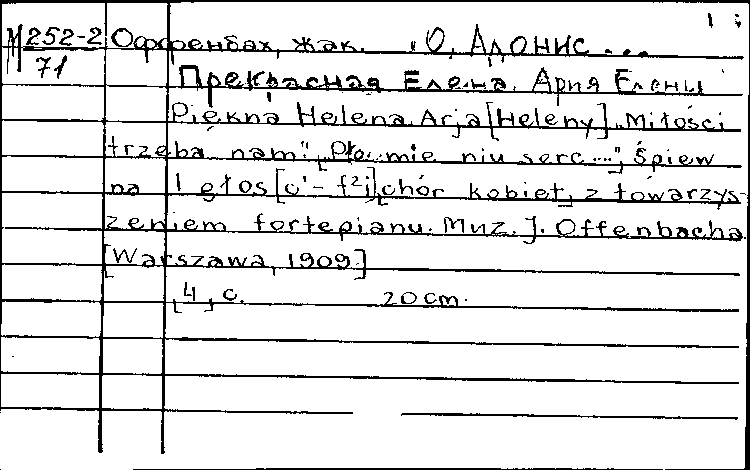 М 252-2 Оффенбах, Жак. "О, Адонис...
71
Прекрасная Елена. Ария Елены
Piękna Helena. Arja [Heleny] „Miłości
trzeba nam". „Pło mie niu serc ...", Śpiew
na 1 głos [c¹ - f²i] chór kobiet, z towarzys-
zeniem fortepianu. Muz. J. Offenbacha
[Warszawa, 1909.]
[4] c. 20 cm.